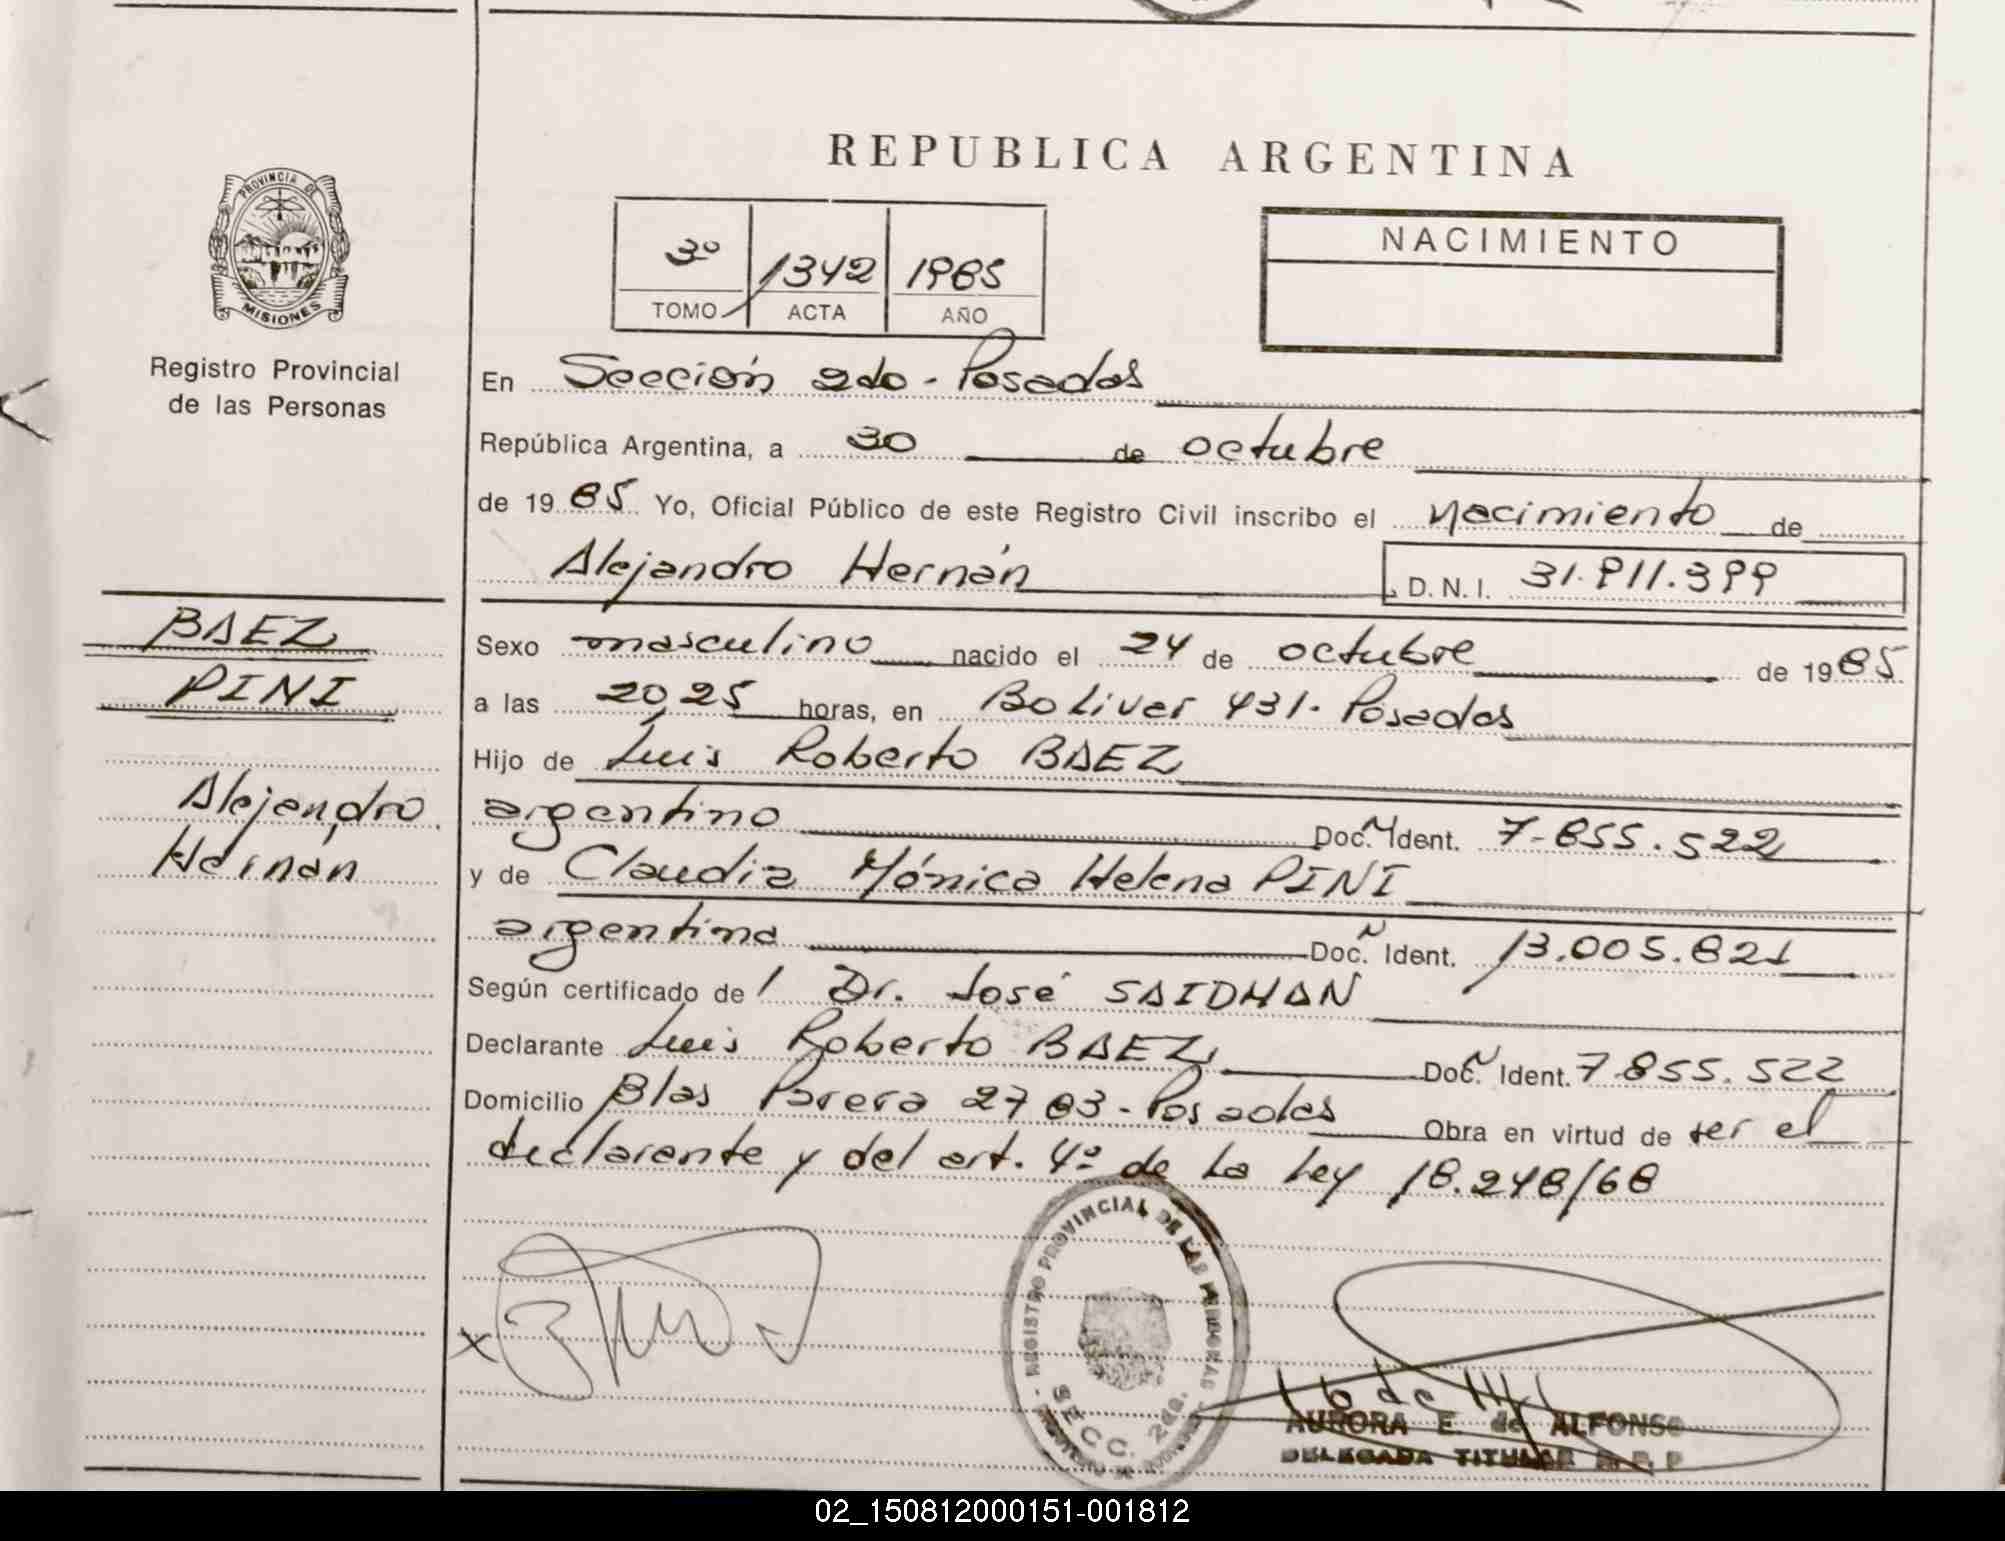 REPUBLICA ARGENTINA
PROVINCIA DE
MISIONES
Registro Provincial
de las Personas
3º 1342 1985
TOMO ACTA AÑO
NACIMIENTO
En Sección 2do - Posadas
República Argentina, a 30 de octubre
de 1985 Yo, Oficial Público de este Registro Civil inscribo el nacimiento de
Alejandro Hernán D. N. I. 31.911.399
BAEZ
PINI
Alejandro
Hernán
Sexo masculino nacido el 24 de octubre de 1985
a las 20,25 horas, en Bolivar 431. Posadas
Hijo de Luis Roberto BAEZ
argentino Doc. Ident. 7.855.522
y de Claudia Mónica Helena PINI
argentina Doc. Ident. 13.005.821
Según certificado de Dr. José SAIDMAN
Declarante Luis Roberto BAEZ Doc. Ident. 7.855.522
Domicilio Blas Parera 2783 - Posadas Obra en virtud de ser el
declarante y del art. 4º de la Ley 18.248/68
REGISTRO PROVINCIAL DE LAS PERSONAS
SECC. 2da.
AURORA E. de ALFONSO
DELEGADA TITULAR R. P. P
02_150812000151-001812